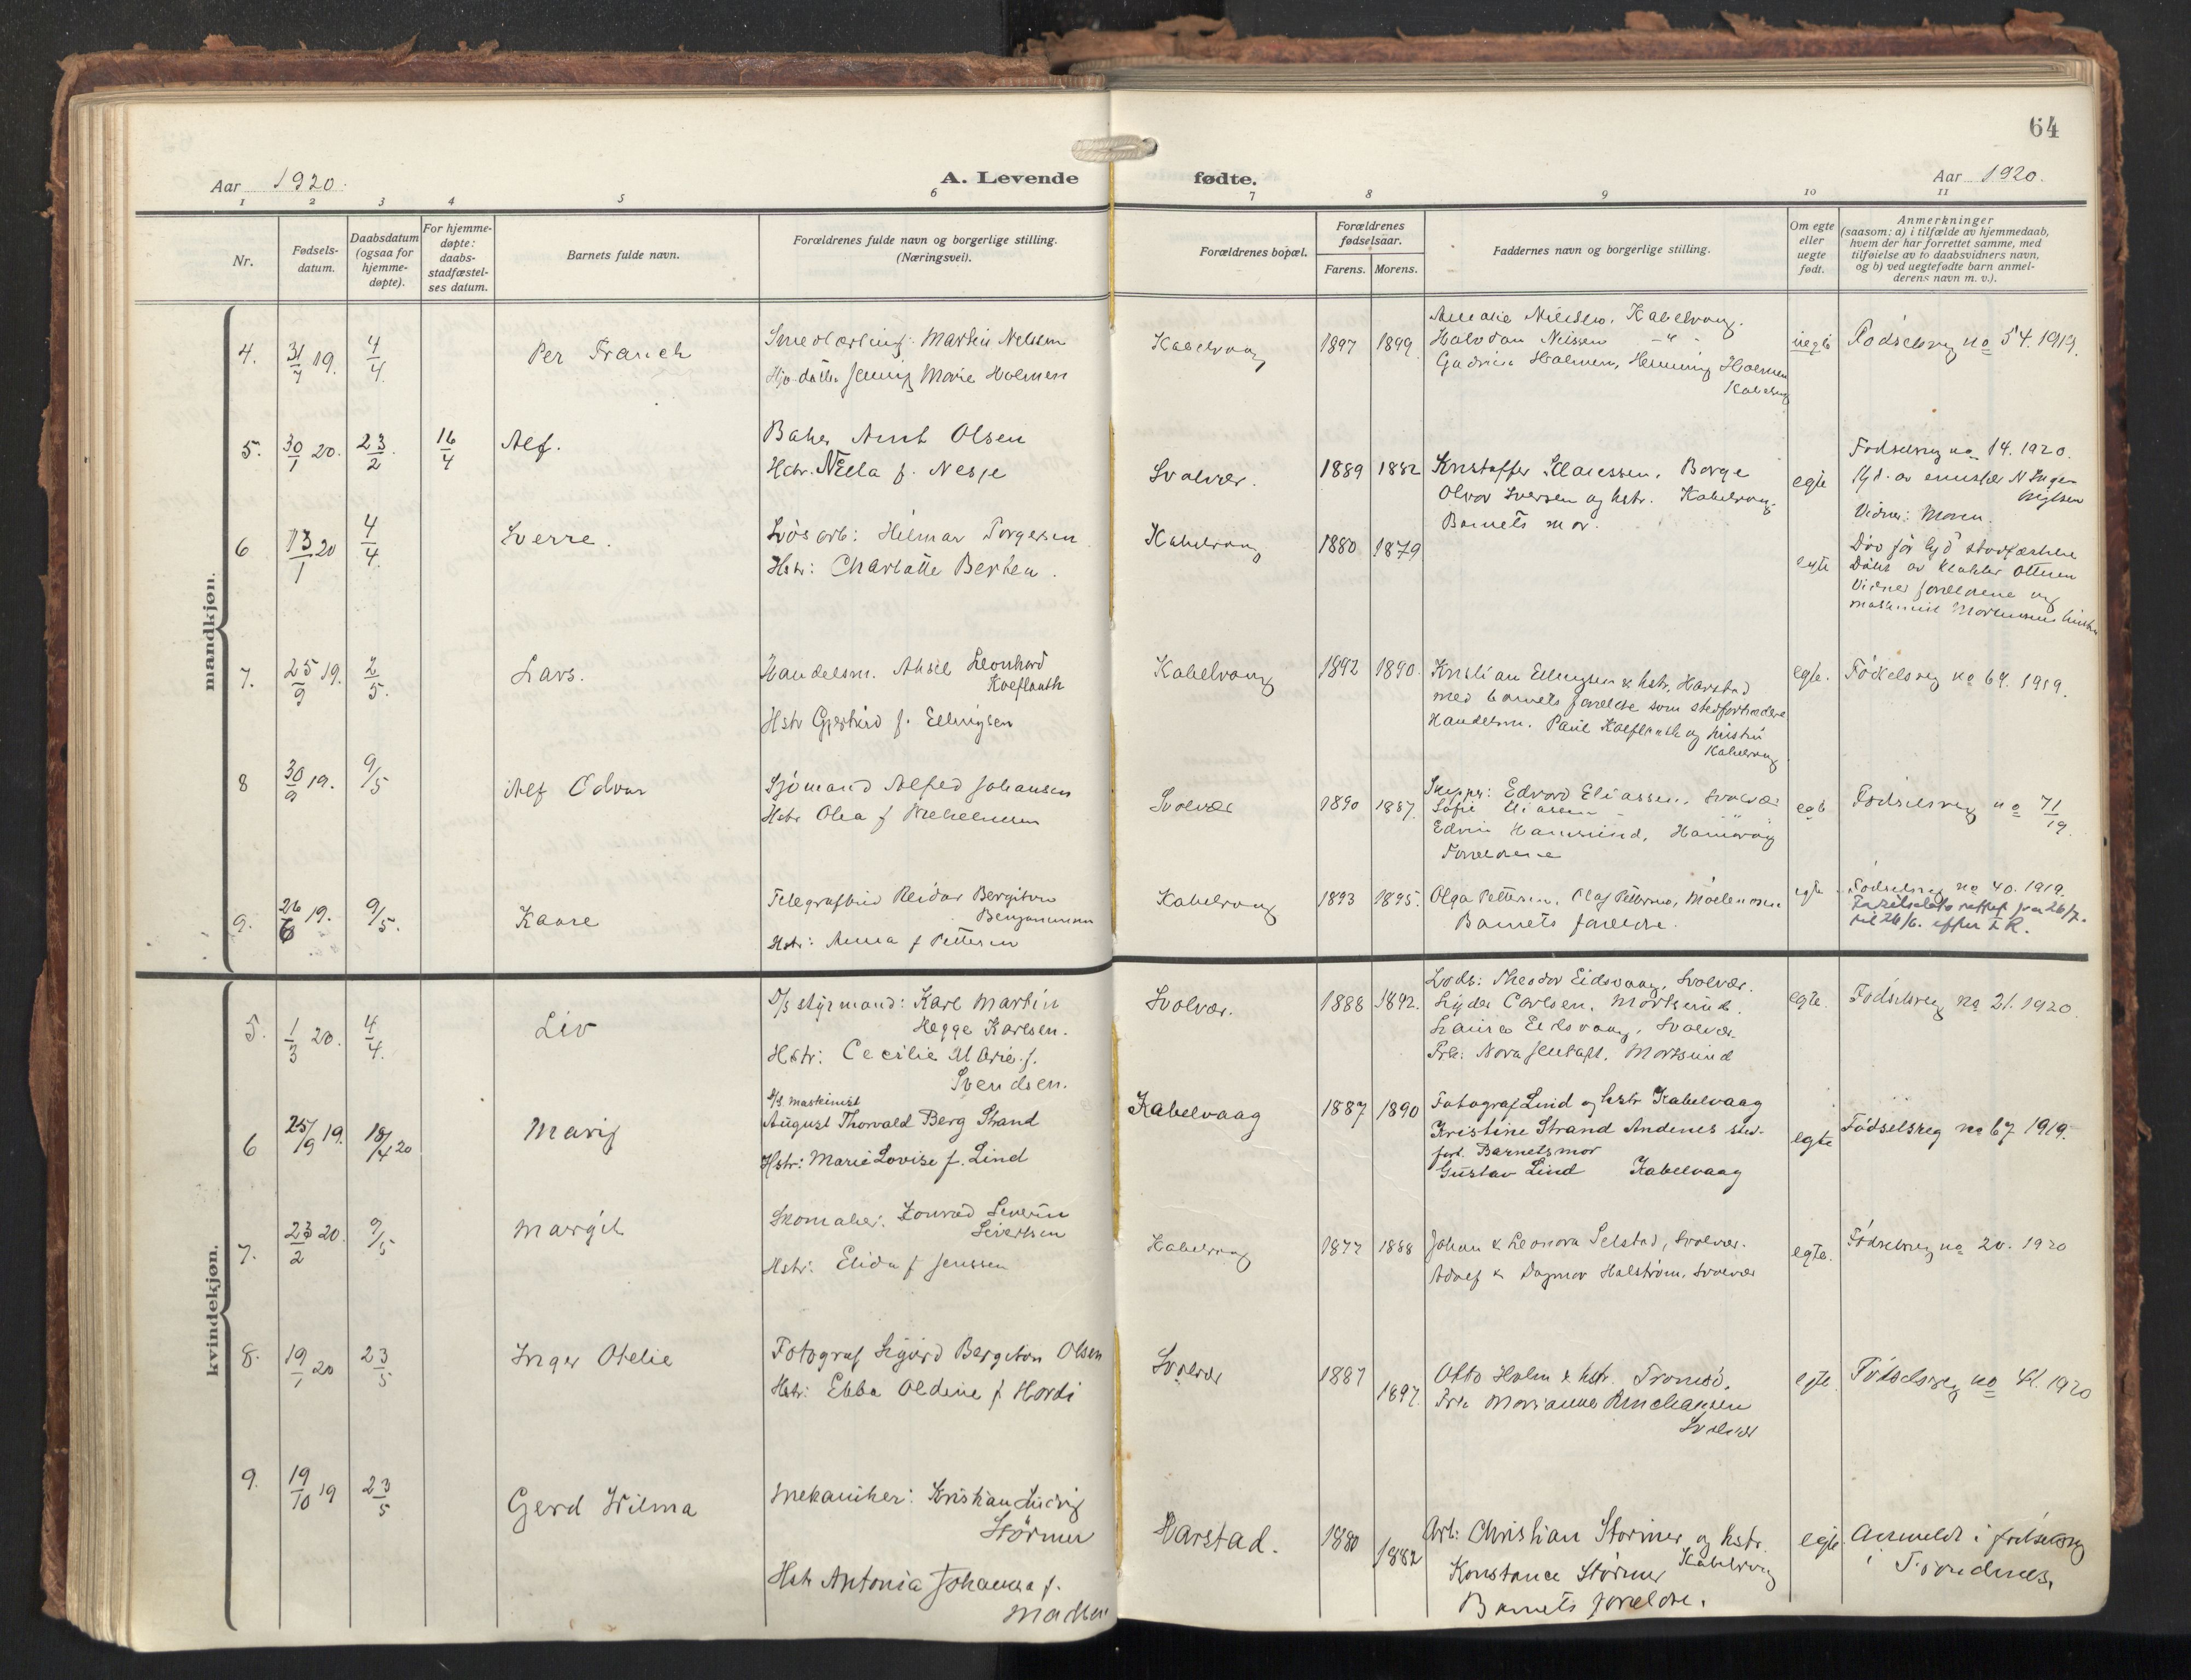 64
Aar 1920.
A. Levende
fødte.
Aar 1920.
1 2 3 4 5 6 7 8 9 10 11
Nr.
Fødsels-
datum.
Daabsdatum
(ogsaa for
hjemme-
døpte).
For hjemme-
døpte:
daabs-
stadfæstel-
ses datum.
Barnets fulde navn.
Forældrenes fulde navn og borgerlige stilling.
(Næringsvei).
Forældrenes bopæl.
Forældrenes
fødselsaar.
Farens. Morens.
Faddernes navn og borgerlige stilling.
Om egte
eller
uegte
født.
Anmerkninger
(saasom: a) i tilfælde av hjemmedaab,
hvem der har forrettet samme, med
tilføielse av to daabsvidners navn,
og b) ved uegtefødte barn anmel-
derens navn m. v.).
mandkjøn.
4. 31/7 19. 4/4 Per Franch
Smedlærling: Martin Nelssen
Hjv. datter Jenny Marie Holmen
Kabelvaag 1897 1899
Amalie Kabelvaag.
Halvdan Nilssen
Holmen, Henning Holmen
Kabelvaag
uegte Fødselsreg no 54. 1919.
5. 30/1 20. 23/2. 16/4 Alf.
Baker Arnt Olsen
Hstr. Nilla f. Nesje
Svolvær. 1889 1882
Kristoffer Borge
Olvar Iversen og hstr. Kabelvaag.
Barnets mor.
egte
Fødselsreg no 14. 1920.
Vidner: Moren.
6 13/1 20 4/4 Sverre.
Løsarb: Hilmar Torgersen
Hstr: Charlotte Berten.
Kabelvaag 1880 1879
egte
Død før stadfæstelse
Døbt av Ottesen
Vidner forældrene og
maskinist
7. 25/9 19. 2/5. Lars.
Handelsm. Aksel Leonhard
Koeflauth
Hstr Gjertrud f. Ellingsen
Kabelvaag 1892 1890.
Kristian Ellingsen & hstr, Harstad
med barnets forældre som stedfortrædere
Handelsm. Paul Koeflauth og hustru
Kabelvaag
egte. Fødselsreg no 69. 1919.
8 30/9 19. 9/5 Alf Edvar
Sjømand Alfred Johansen
Hstr Olea f
Svolvær 1890 1887.
Skipper: Edvard Eliassen. Svolvær
Sofie Eliassen
Edvin Hamsund,
Forældrene
egte Fødselsreg no 71/19.
9. 26/6 19. 9/5. Kaare
Telegrafbud Reidar Bergiton
Benjaminsen
Hstr: Anna f Pettersen
Kabelvaag 1893 1895.
Olga Pettersen, Olaf Pettersen,
Barnets forældre.
egte. Fødselsreg no 40. 1919.
Fødselsdato rettet fra 26/7.
til 26/6. efter F R.
kvindekjøn.
5. 1/3 20. 4/4. Liv
D/s styrmand: Karl Martin
Hegge Karlsen.
Hstr: Cecilie Marie f.
Svendsen.
Svolvær. 1888 1892.
Lods: Theodor Eidsvaag, Svolvær.
Lyder Carlsen, Mortsund.
Laura Eidsvaag, Svolvær.
Frk: Nora Jentoft, Mortsund
egte. Fødselsreg no 21. 1920.
6 25/9 19. 18/4 20 Marij
D/s maskinist
August Thorvald Berg Strand
Hstr: Marie Lovise f. Lind
Kabelvaag 1887 1890
Fotograf Lind og hstr Kabelvaag
Kristine Strand Andenes sted-
fort. Barnets mor
Gustav Lind Kabelvaag
egte Fødselsreg no 67 1919.
7. 23/2 20. 9/5 Margit
Skomaker: Konrad Severin
Sivertsen
Hstr: Elida f Jenssen
Kabelvaag 1877 1888
Johan & Leonora Selstad, Svolvær.
Adolf & Dagmar Halstrøm, Svolvær
egte. Fødselsreg no 20. 1920
8. 19/1 20 23/5 Inger Otelie
Fotograf Sigurd Bergiton Olsen
Hstr: Ebba Oldine f Hordi
Svolvær 1887 1897.
Otto Holm & hstr. Tromsø,
Frk Marianne
Svolvær
egte. Fødselsreg no 41. 1920
9. 19/10 19 23/5 Gerd Wilma
Mekaniker: Kristian Ludvig
Størmer
Hstr Antonia Johanna f.
Harstad. 1880 1882
Arb: Christian Størmer og hstr.
Kabelvaag
Konstance Størmer
Barnets forældre.
egte. Anmeldt i fødselsreg
i Trondenes.